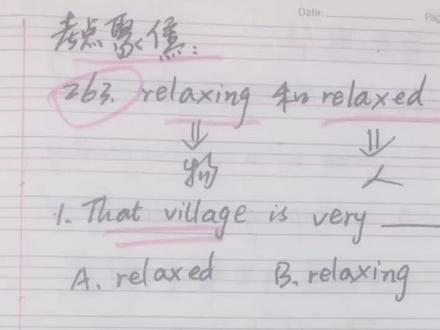 Date:
考点聚焦:
263. relaxing 和 relaxed
⇓ ⇓
物 人
1. That village is very ____
A. relaxed B. relaxing